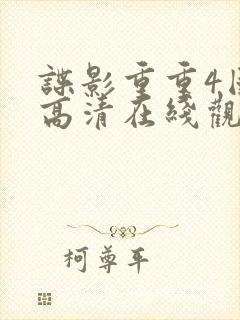 諜影重重4
高清在綫觀
柯尊平